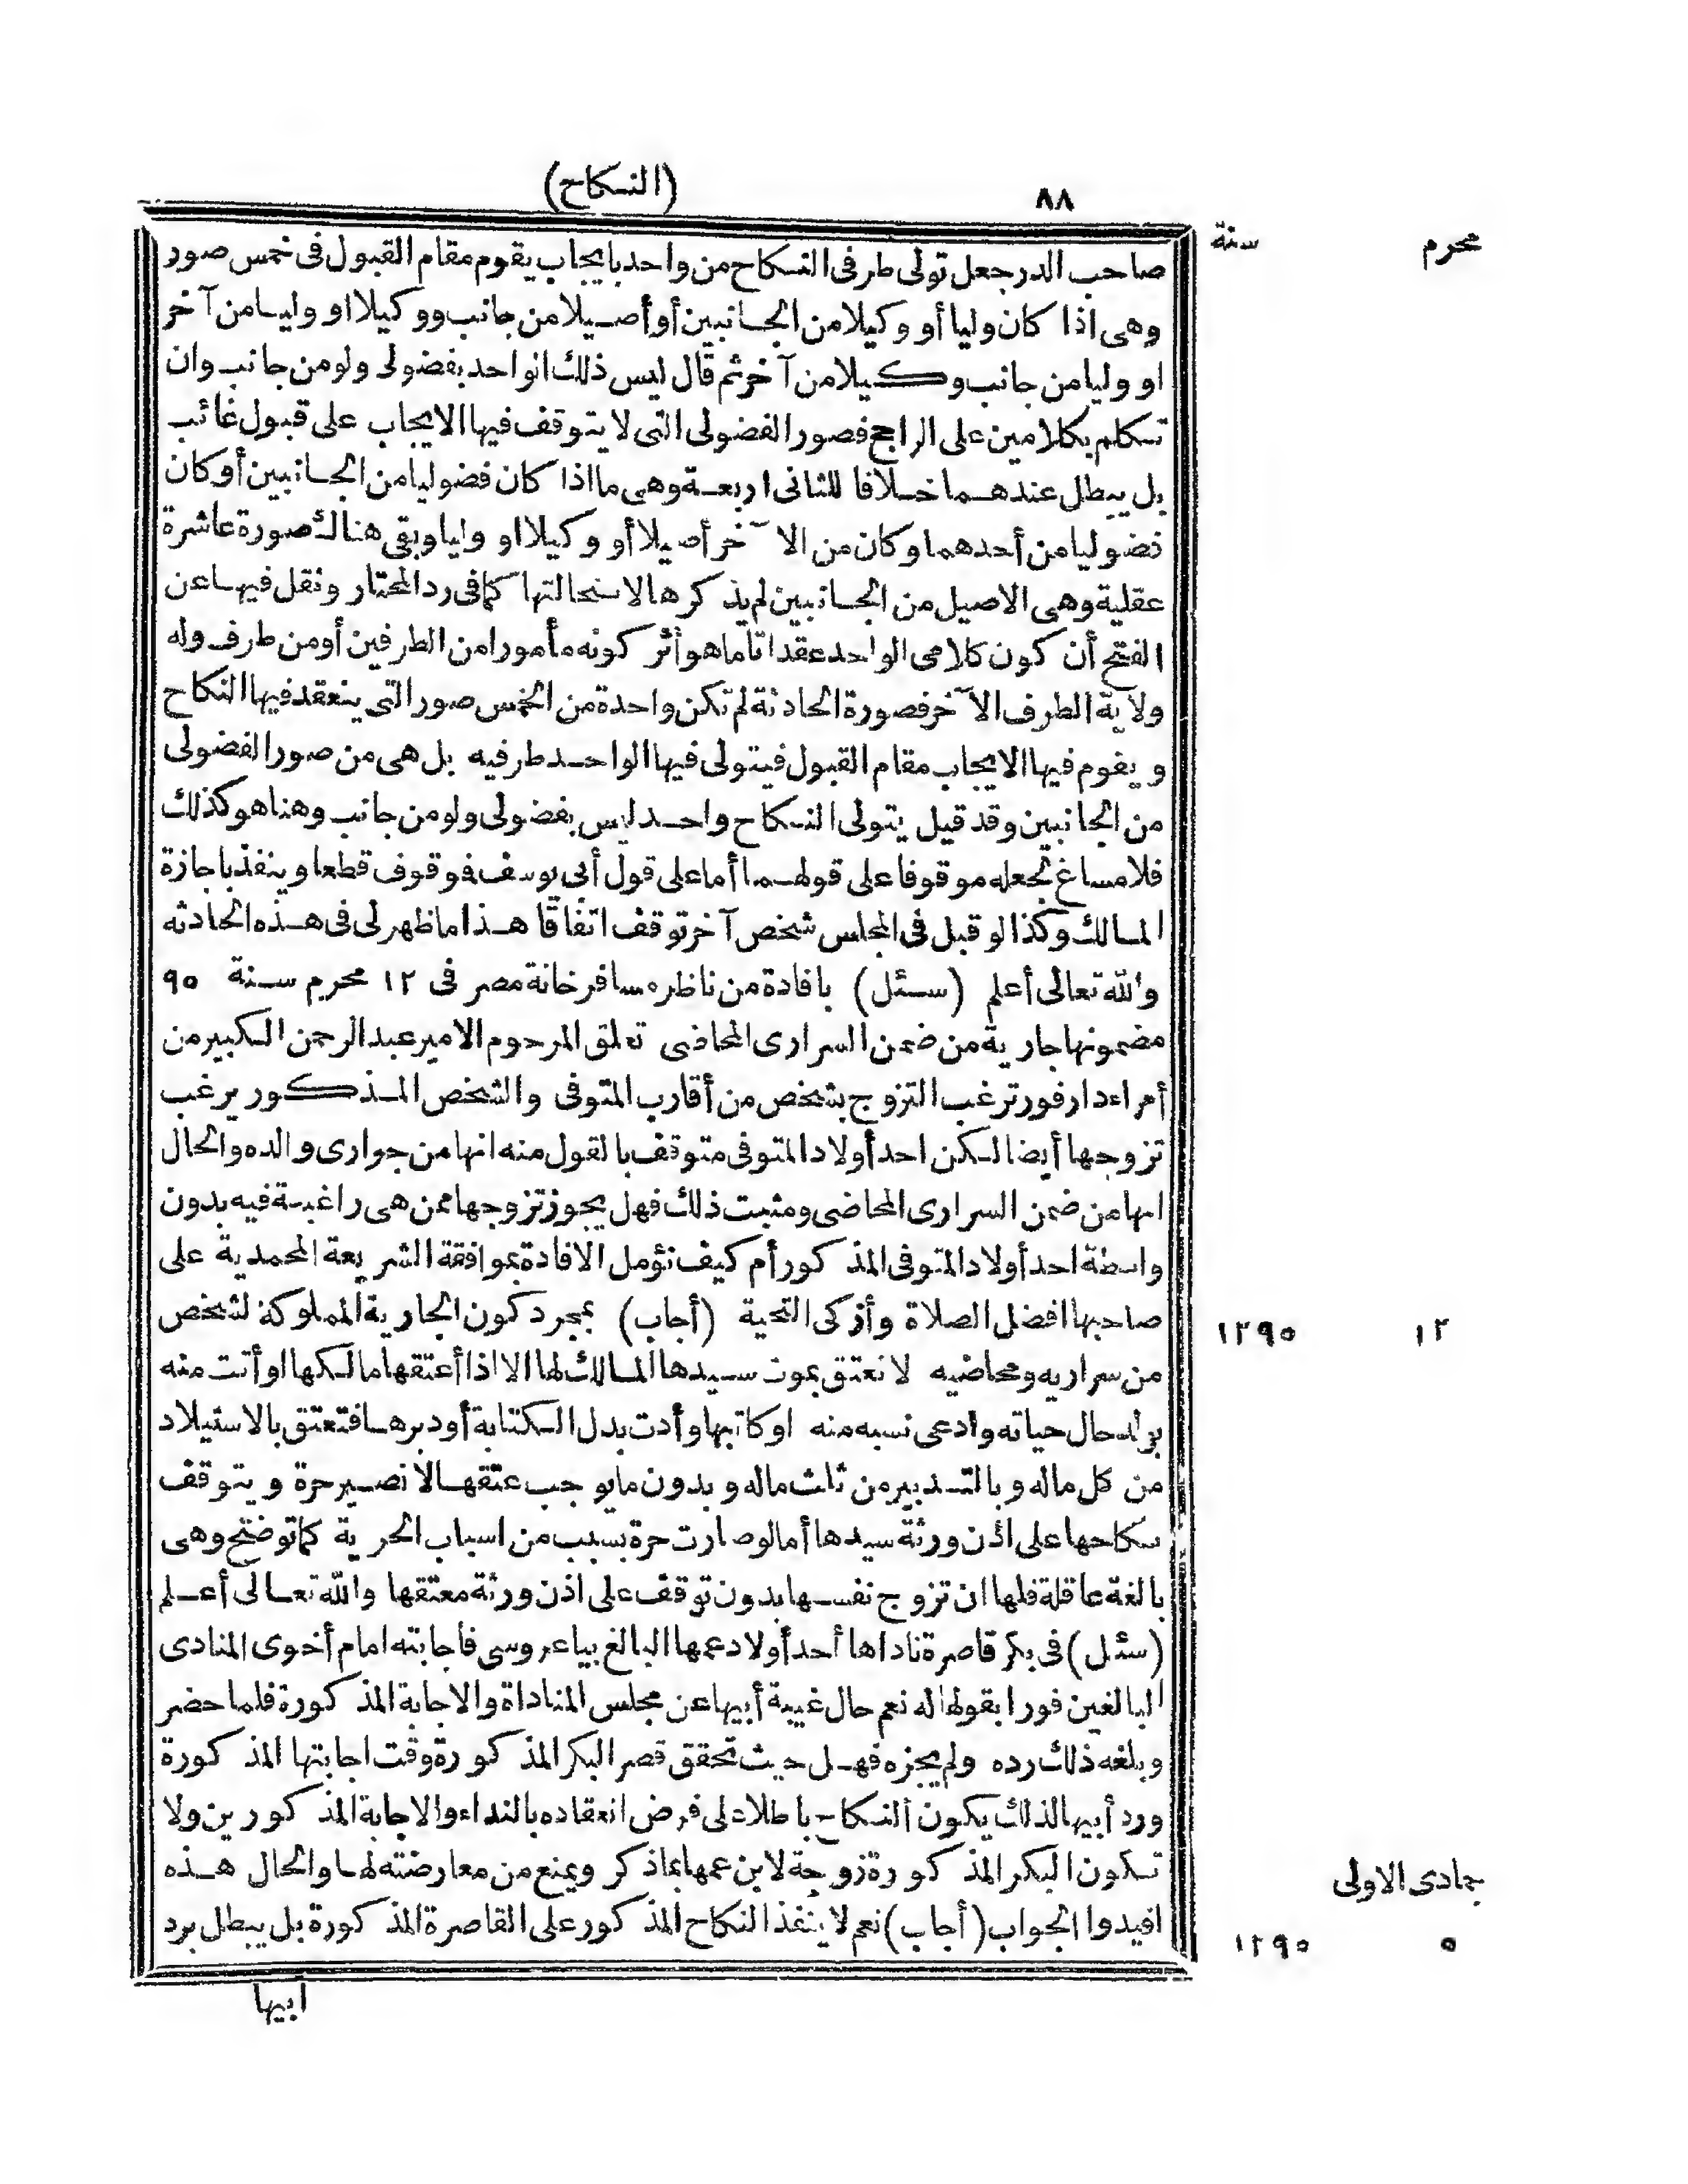 ٨٨
(النكاح)
محرم سنة
صاحب الدر جعل تولى طرفى النكاح من واحد بايجاب يقوم مقام القبول فى خمس صور
وهى اذا كان وليا أو وكيلا من الجانبين أو أصيلا من جانب ووكيلا او وليا من آخر
او وليا من جانب وكيلا من آخر ثم قال ليس ذلك الواحد بفضولى ولو من جانب وان
تكلم بكلامين على الراجح فصور الفضولى التى لا يتوقف فيها الايجاب على قبول غائب
بل يبطل عندهما خلافا للثانى اربعة وهى ما اذا كان فضوليا من الجانبين أو كان
فضوليا من أحدهما وكان من الآخر أصيلا أو وكيلا او وليا وبقى هناك صورة عاشرة
عقلية وهى الاصيل من الجانبين لم يذكرها لاستحالتها كما فى رد المحتار ونقل فيها عن
الفتح أن كون كلامى الواحد عقدا تاما هو أثر كونه مأمورا من الطرفين أو من طرف وله
ولاية الطرف الآخر فصورة الحادثة لم تكن واحدة من الخمس صور التى ينعقد فيها النكاح
ويقوم فيها الايجاب مقام القبول فيتولى فيها الواحد طرفيه بل هى من صور الفضولى
من الجانبين وقد قيل يتولى النكاح واحد ليس بفضولى ولو من جانب وهنا هو كذلك
فلا مساغ لجعله موقوفا على قولهما أما على قول أبى يوسف فوقوف قطعا وينفذ باجازة
المالك وكذا لو قبل فى المجلس شخص آخر توقف اتفاقا هذا ما ظهر لى فى هذه الحادثه
والله تعالى أعلم (سئل) بافادة من ناظر مسافرخانة مصر فى ١٢ محرم سنة ٩٠
مضمونها جارية من ضمن السرارى المحاضى تعلق المرحوم الامير عبد الرحمن الكبير من
أمراء دارفور ترغب التزوج بشخص من أقارب المتوفى والشخص المذكور يرغب
تزوجها أيضا لكن احد أولاد المتوفى متوقف بالقول منه انها من جوارى والده والحال
انها من ضمن السرارى المحاضى ومثبت ذلك فهل يجوز تزوجها ممن هى راغبة فيه بدون
واسطة احد أولاد المتوفى المذكور أم كيف نؤمل الافادة بموافقة الشريعة المحمدية على
صاحبها افضل الصلاة وأزكى التحية (أجاب) بمجرد كون الجارية المملوكة لشخص
١٢ ١٢٩٥
من سراريه ومحاضيه لا تعتق بموت سيدها المالك لها الا اذا أعتقها مالكها او أتت منه
بولد حال حياته وادعى نسبه منه او كاتبها وأدت بدل الكتابة أو دبرها فتعتق بالاستيلاد
من كل ماله وبالتدبير من ثلث ماله وبدون ما يوجب عتقها لا تصير حرة ويتوقف
نكاحها على اذن ورثة سيدها أما لو صارت حرة بسبب من اسباب الحرية كما توضح وهى
بالغة عاقلة فلها ان تزوج نفسها بدون توقف على اذن ورثة معتقها والله تعالى أعلم
(سئل) فى بكر قاصرة ناداها أحد أولاد عمها البالغ بيا عروسى فاجابته امام أخوى المنادى
البالغين فورا بقولها له نعم حال غيبة أبيها عن مجلس المناداة والاجابة المذكورة فلما حضر
وبلغه ذلك رده ولم يجزه فهل حيث تحقق قصر البكر المذكورة وقت اجابتها المذكورة
ورد أبيها لذلك يكون النكاح باطلا على فرض انعقاده بالنداء والاجابة المذكورين ولا
تكون البكر المذكورة زوجة لابن عمها بماذكر ويمنع من معارضته لها والحال هذه
جمادى الاولى
افيدوا الجواب (أجاب) نعم لا ينفذ النكاح المذكور على القاصرة المذكورة بل يبطل برد
٥ ١٢٩٥
ابيها